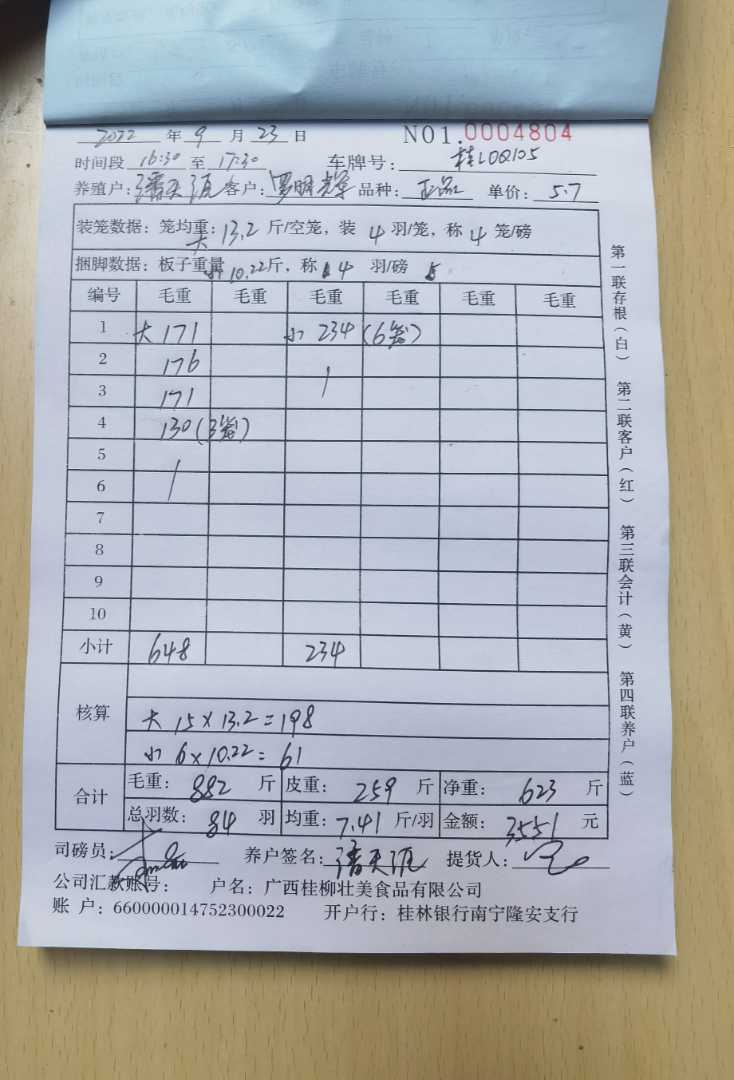 2022 年 9 月 23 日 NO1.0004804
时间段 16:30 至 17:30 车牌号：桂L0Q105
养殖户：潘天流 客户：罗明辉 品种：正品 单价：5.7
装笼数据：笼均重：大 13.2 斤/空笼，装 4 羽/笼，称 4 笼/磅
捆脚数据：板子重量 小 10.22斤，称 4 羽/磅 5
编号 毛重 毛重 毛重 毛重 毛重 毛重
1 大 171 小 234 (6笼)
2 176
3 171
4 130 (3笼)
5
6
7
8
9
10
小计 648 234
核算
大 15×13.2=198
小 6×10.22=61
合计
毛重：882 斤 皮重：259 斤 净重：623 斤
总羽数：84 羽 均重：7.41 斤/羽 金额：3551 元
司磅员： 养户签名：潘天流 提货人：
公司汇款账号： 户名：广西桂柳壮美食品有限公司
账 户：660000014752300022 开户行：桂林银行南宁隆安支行
第一联存根（白） 第二联客户（红） 第三联会计（黄） 第四联养户（蓝）